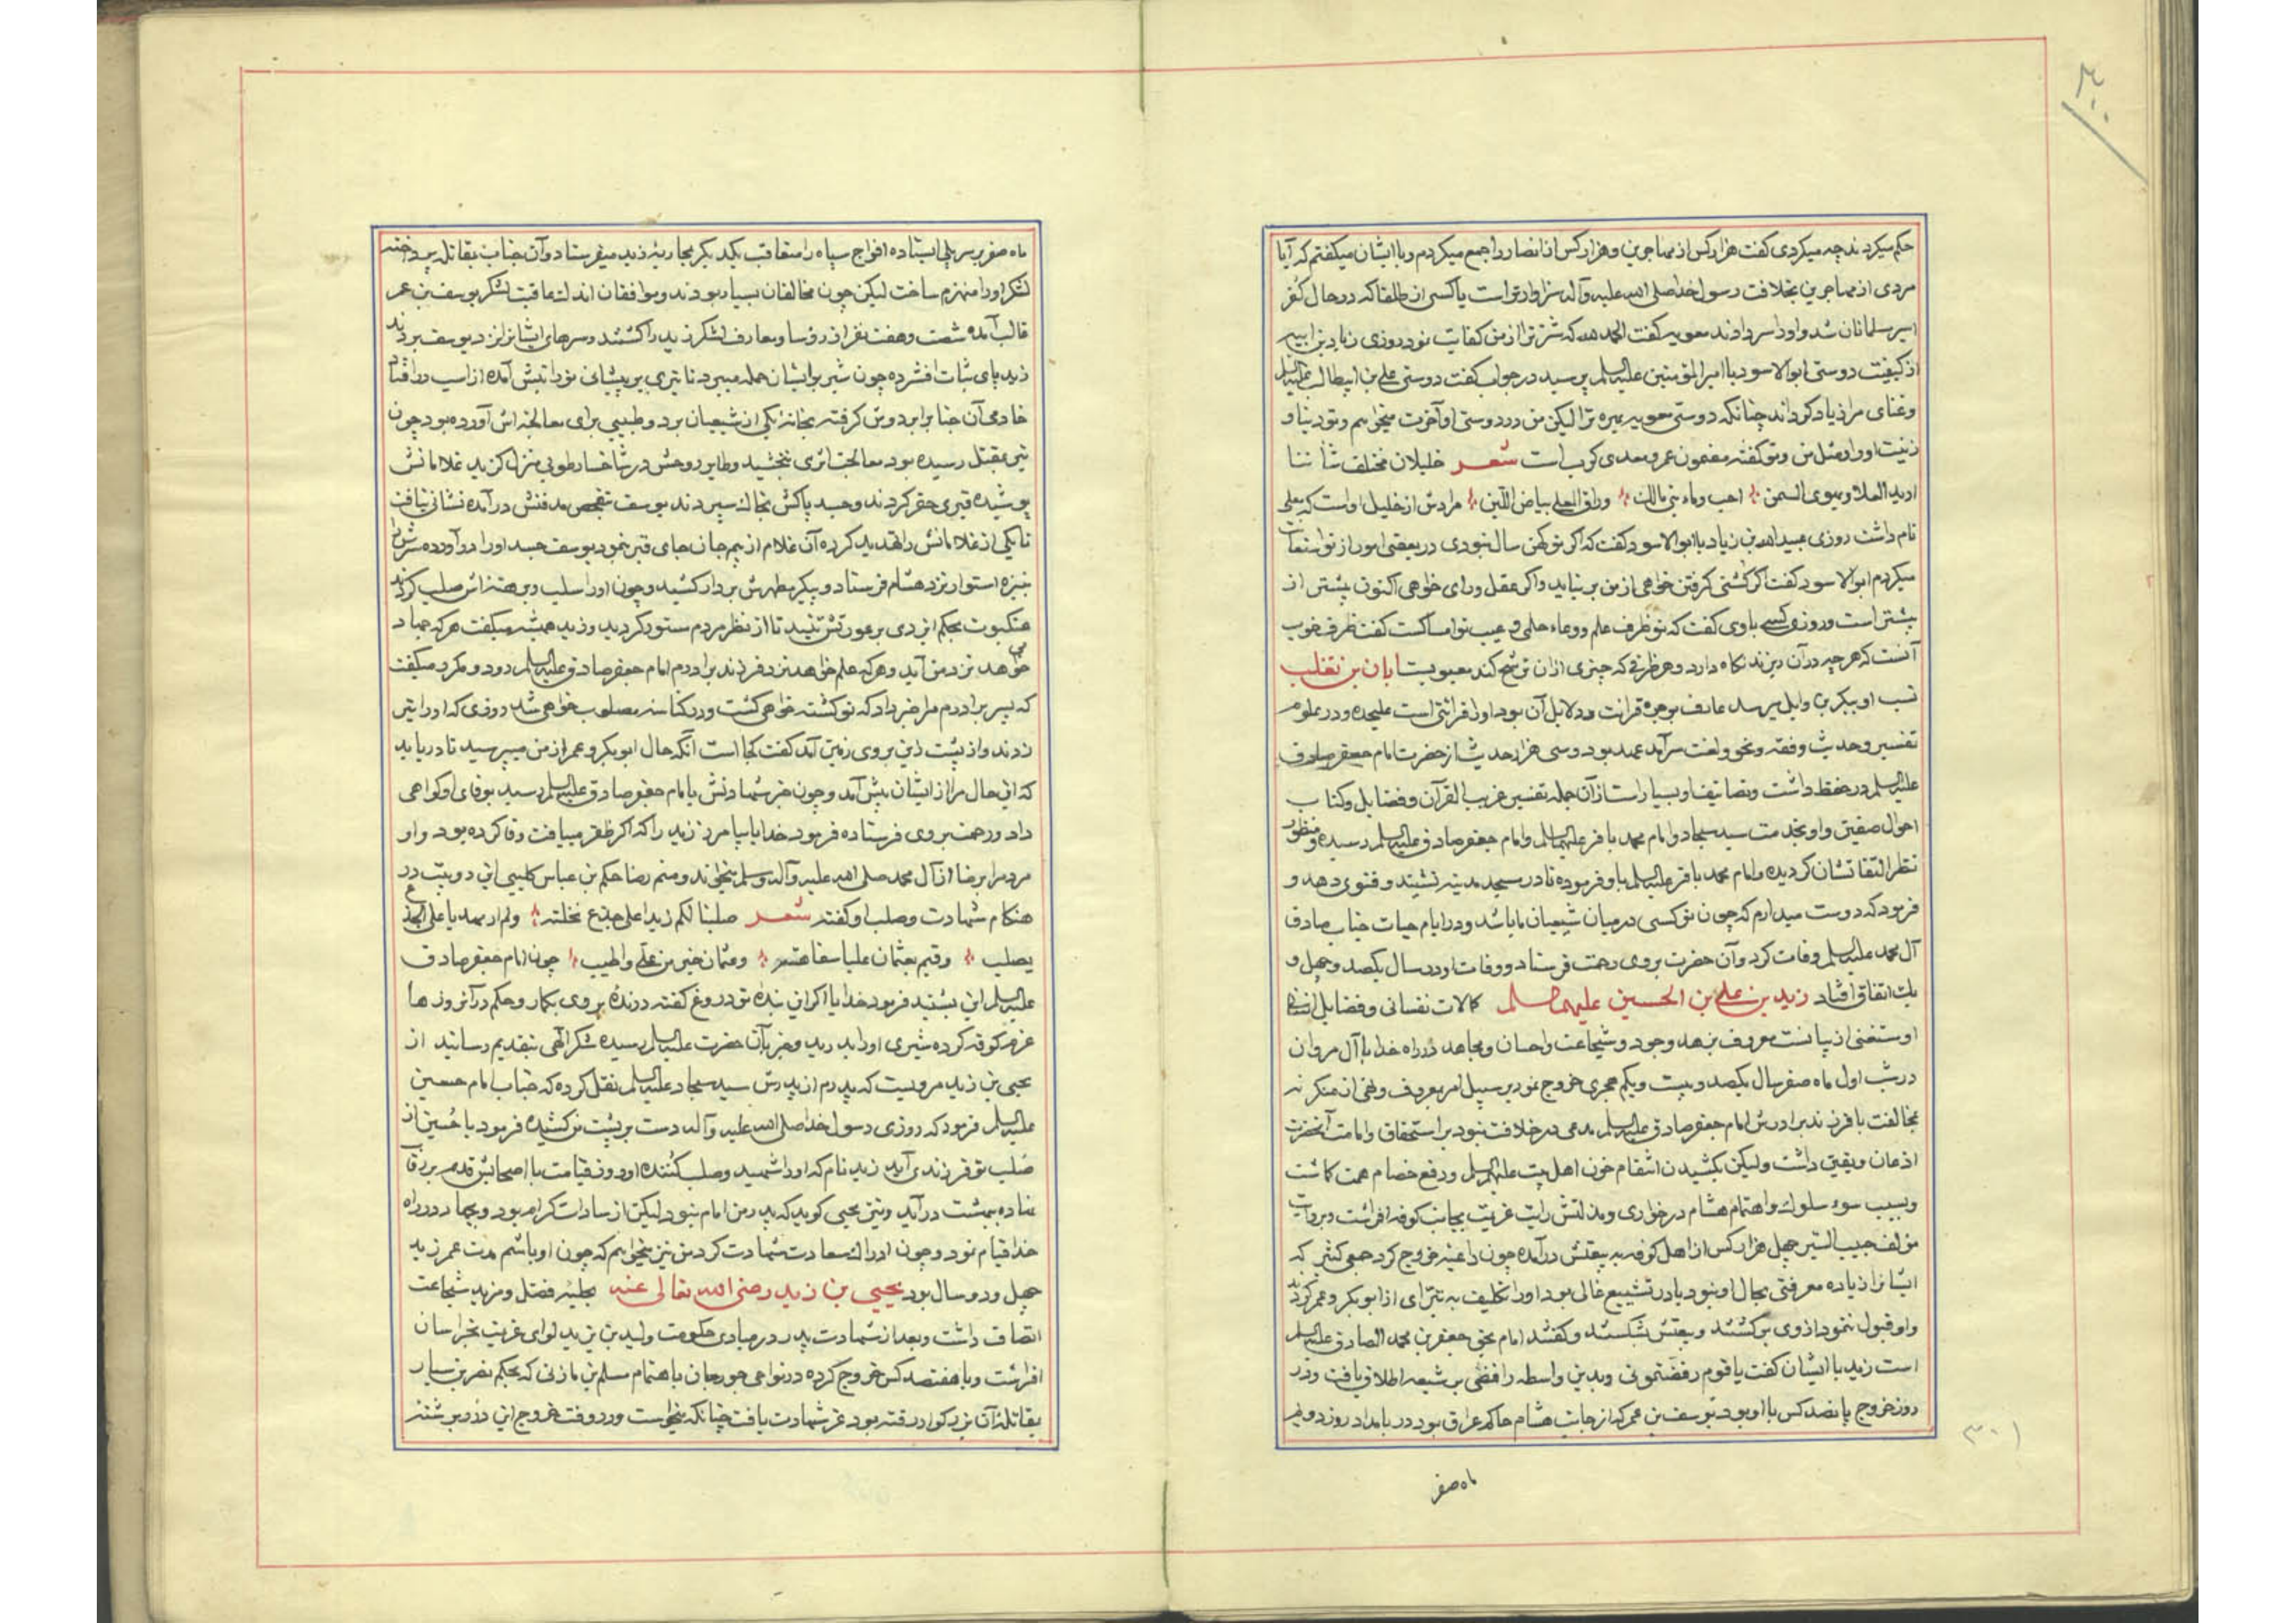 حکم میکردند چه میکردی کفت هزار کس از مهاجرین و هزار کس از انصار را جمع میکردم و با ایشان میکفتم که آیا
مردی از مهاجرین بخلافت رسول خدا صلی الله علیه وآله سزاوارتر است یا کسی از طلقا که در حال کفر
اسیر مسلمانان شد و او را سر دادند معویه کفت الحمد لله که شر ترا از من کفایت نمود روزی زیاد بن ابیه
از کیفیت دوستی ابوالاسود با امیرالمؤمنین علیه السلم پرسید در جواب کفت دوستی علی بن ابیطالب علیه السلم
و غنای مرا زیاد کرداند چنانکه دوستی معویه مر ترا لیکن من در دوستی او آخرت میخواهم و تو دنیا و
زینت او را و مثل من و تو کفته مضمون عمرو معدی کرب است شعر خلیلان مختلف شاننا
ارید العلا و یهوی السمن احب دماء بنی مالک وراق المعلی بیاض اللبن مرادش از خلیل اوست که معلی
نام داشت روزی عبید الله بن زیاد با ابوالاسود کفت که اکر تو کهن سال نبودی در بعضی امور از تو استعانت
میکردم ابوالاسود کفت اکر کشتی کرفتن خواهی از من بر نیاید و اکر عقل و رای خواهی اکنون بیشتر از
پیشتر است و روزی کسی با وی کفت که تو ظرف علم و وعاء حلمی و عیب تو امساکست کفت ظرف خوب
آنست که هر چه در آن ریزند نکاه دارد و هر ظرفی که چیزی از آن ترشح کند معیوبست ابان بن تغلب
نسب او ببکر بن وایل میرسد عارف بوجوه قرائت و دلایل آن بود او را قرائتی است علیحده و در علوم
تفسیر و حدیث و فقه و نحو و لغت سرآمد عهد بود و سی هزار حدیث از حضرت امام جعفر صادق
علیه السلم در حفظ داشت و تصانیف او بسیار است از آن جمله تفسیر غریب القرآن و فضایل و کتاب
احوال صفین و او بخدمت سید سجاد و امام محمد باقر علیهما السلم و امام جعفر صادق علیه السلم رسیده و منظور
نظر التفاتشان کردیده و امام محمد باقر علیه السلم باو فرموده تا در مسجد مدینه نشیند و فتوی دهد و
فرمود که دوست میدارم که چون تو کسی در میان شیعیان ما باشد و در ایام حیات جناب صادق
آل محمد علیه السلم وفات کرد و آن حضرت بر وی رحمت فرستاد و وفات او در سال یکصد و چهل و
یک اتفاق افتاد زید بن علی بن الحسین علیهما السلم کمالات نفسانی و فضایل
او مستغنی از بیانست معروف بزهد وجود و شجاعت واحسان ومجاهد در راه خدا با آل مروان
در شب اول ماه صفر سال یکصد و بیست و یکم هجری خروج نمود بر سبیل امر بمعروف و نهی از منکر نه
بمخالفت با فرزند برادرش امام جعفر صادق علیه السلم مدعی در خلافت نبود بر استحقاق و امامت آنحضرت
اذعان و یقین داشت ولیکن بکشیدن انتقام خون اهل بیت علیهم السلم و دفع خصام همت کماشت
و بسبب سوء سلوک و اهتمام هشام در خواری و مذلتش رایت عزیمت بجانب کوفه افراشت و بروایت
مؤلف حبیب السیر چهل هزار کس از اهل کوفه به بیعتش درآمده چون داعیه خروج کرد جمعی کثیر که
ایشانرا زیاده معرفتی بحال او نبود یا در تشیع غالی بود او را تکلیف به تبرای از ابوبکر و عمر کردند
و او قبول ننمود از وی برکشتند و بیعتش بشکستند و کفتند امام بحق جعفر بن محمد الصادق علیه السلم
است زید با ایشان کفت یا قوم رفضتمونی و بدین واسطه رافضی بر شیعه اطلاق یافت و در
روز خروج پانصد کس با او بود و یوسف بن عمر که از جانب هشام حاکم عراق بود در بامداد روز دویم
ماه صفر
۳۰۱
ماه صفر بر سر پلی ایستاده افواج سپاه را متعاقب یکدیکر بمحاربه زید میفرستاد و آن جناب بمقاتله پرداخته
لشکر او را منهزم ساخت لیکن چون مخالفان بسیار بودند و موافقان اندک عاقبت لشکر یوسف بن عمر
غالب آمده شصت و هفت نفر از رؤسا و معارف لشکر زید را کشتند و سرهای ایشانرا نزد یوسف بردند
زید پای ثبات افشرده چون شیر بر ایشان حمله میبرد تا تیری بر پیشانی نورانیش آمده از اسب درافتاد
خادمی آن جناب را بر دوش کرفته بخانه یکی از شیعیان برد و طبیبی برای معالجه اش آورده بود چون
تیر بمقتل رسیده بود معالجت اثری نبخشید و طایر روحش در شاخسار طوبی منزل کزید غلامانش
پوشیده قبری حفر کردند و جسد پاکش بخاک سپردند یوسف بتفحص مدفنش درآمده نشانی نیافت
تا یکی از غلامانش را تهدید کرده آن غلام از بیم جان جای قبر بنمود یوسف جسد او را درآورده سرش را
بنیزه استوار نزد هشام فرستاد و پیکر مطهرش بر دار کشید و چون او را سلیب و برهنه اش صلیب کردند
عنکبوت بحکم ایزدی بر عورتش تنید تا از نظر مردم مستور کردید و زید همیشه میکفت هر که جهاد
خواهد نزد من آید و هر که علم خواهد نزد فرزند برادرم امام جعفر صادق علیه السلم رود و مکرر میکفت
که پسر برادرم مرا خبر داد که تو کشته خواهی کشت و در کناسه مصلوب خواهی شد روزی که او را تیر
زدند و از پشت زین بروی زمین آمد کفت کجا است آنکه حال ابوبکر و عمر از من میپرسید تا دریابد
که این حال مرا از ایشان پیش آمد و چون خبر شهادتش بامام جعفر صادق علیه السلم رسید بوفای او کواهی
داد و رحمت بر وی فرستاده فرمود خدایا بیامرز زید را که اکر ظفر مییافت وفا کرده بود و او
مردم را برضا از آل محمد صلی الله علیه وآله وسلم میخواند و منم رضا حکم بن عباس کلبی این دو بیت در
هنکام شهادت و صلب او کفته شعر صلبنا لکم زیدا علی جذع نخلة ولم ار مهدیا علی الجذع
یصلب وقیم بعثمان علیا سفاهته وعثمان خیر من علی واطیب چون امام جعفر صادق
علیه السلم این بشنید فرمود خدایا اکر این بنده تو دروغ کفته درندهٔ بر وی بکمار و حکم در آنروزها
عزم کوفه کرده شیری او را بدرید و خبر بآن حضرت علیه السلم رسیده شکر الهی بتقدیم رسانید از
یحیی بن زید مرویست که پدرم از پدرش سید سجاد علیه السلم نقل کرده که جناب امام حسین
علیه السلم فرمود که روزی رسول خدا صلی الله علیه وآله دست بر پشت من کشیده فرمود یا حسین از
صلب تو فرزندی آید زید نام که او را شهید و صلب کننده او روز قیامت با اصحابش قدم بر رقاب
نهاده ببهشت درآید و نیز یحیی کوید که پدر من امام نبود لیکن از سادات کرام بود و بجهاد در راه
خدا قیام نمود و چون ادراک سعادت شهادت کرد من نیز میخواهم که چون او باشم مدت عمر زید
چهل و دو سال بود یحیی بن زید رضی الله تعالی عنه بحلیه فضل و مزید شجاعت
اتصاف داشت و بعد از شهادت پدر در مبادی حکومت ولید بن یزید لوای عزیمت بخراسان
افراشت و با هفتصد کس خروج کرده در نواحی جورجان باهتمام مسلم بن مازنی که بحکم نصر بن سیار
بمقاتله آن بزرکوار رفته بود عز شهادت یافت چنانکه میخواست و در وقت خروج این در